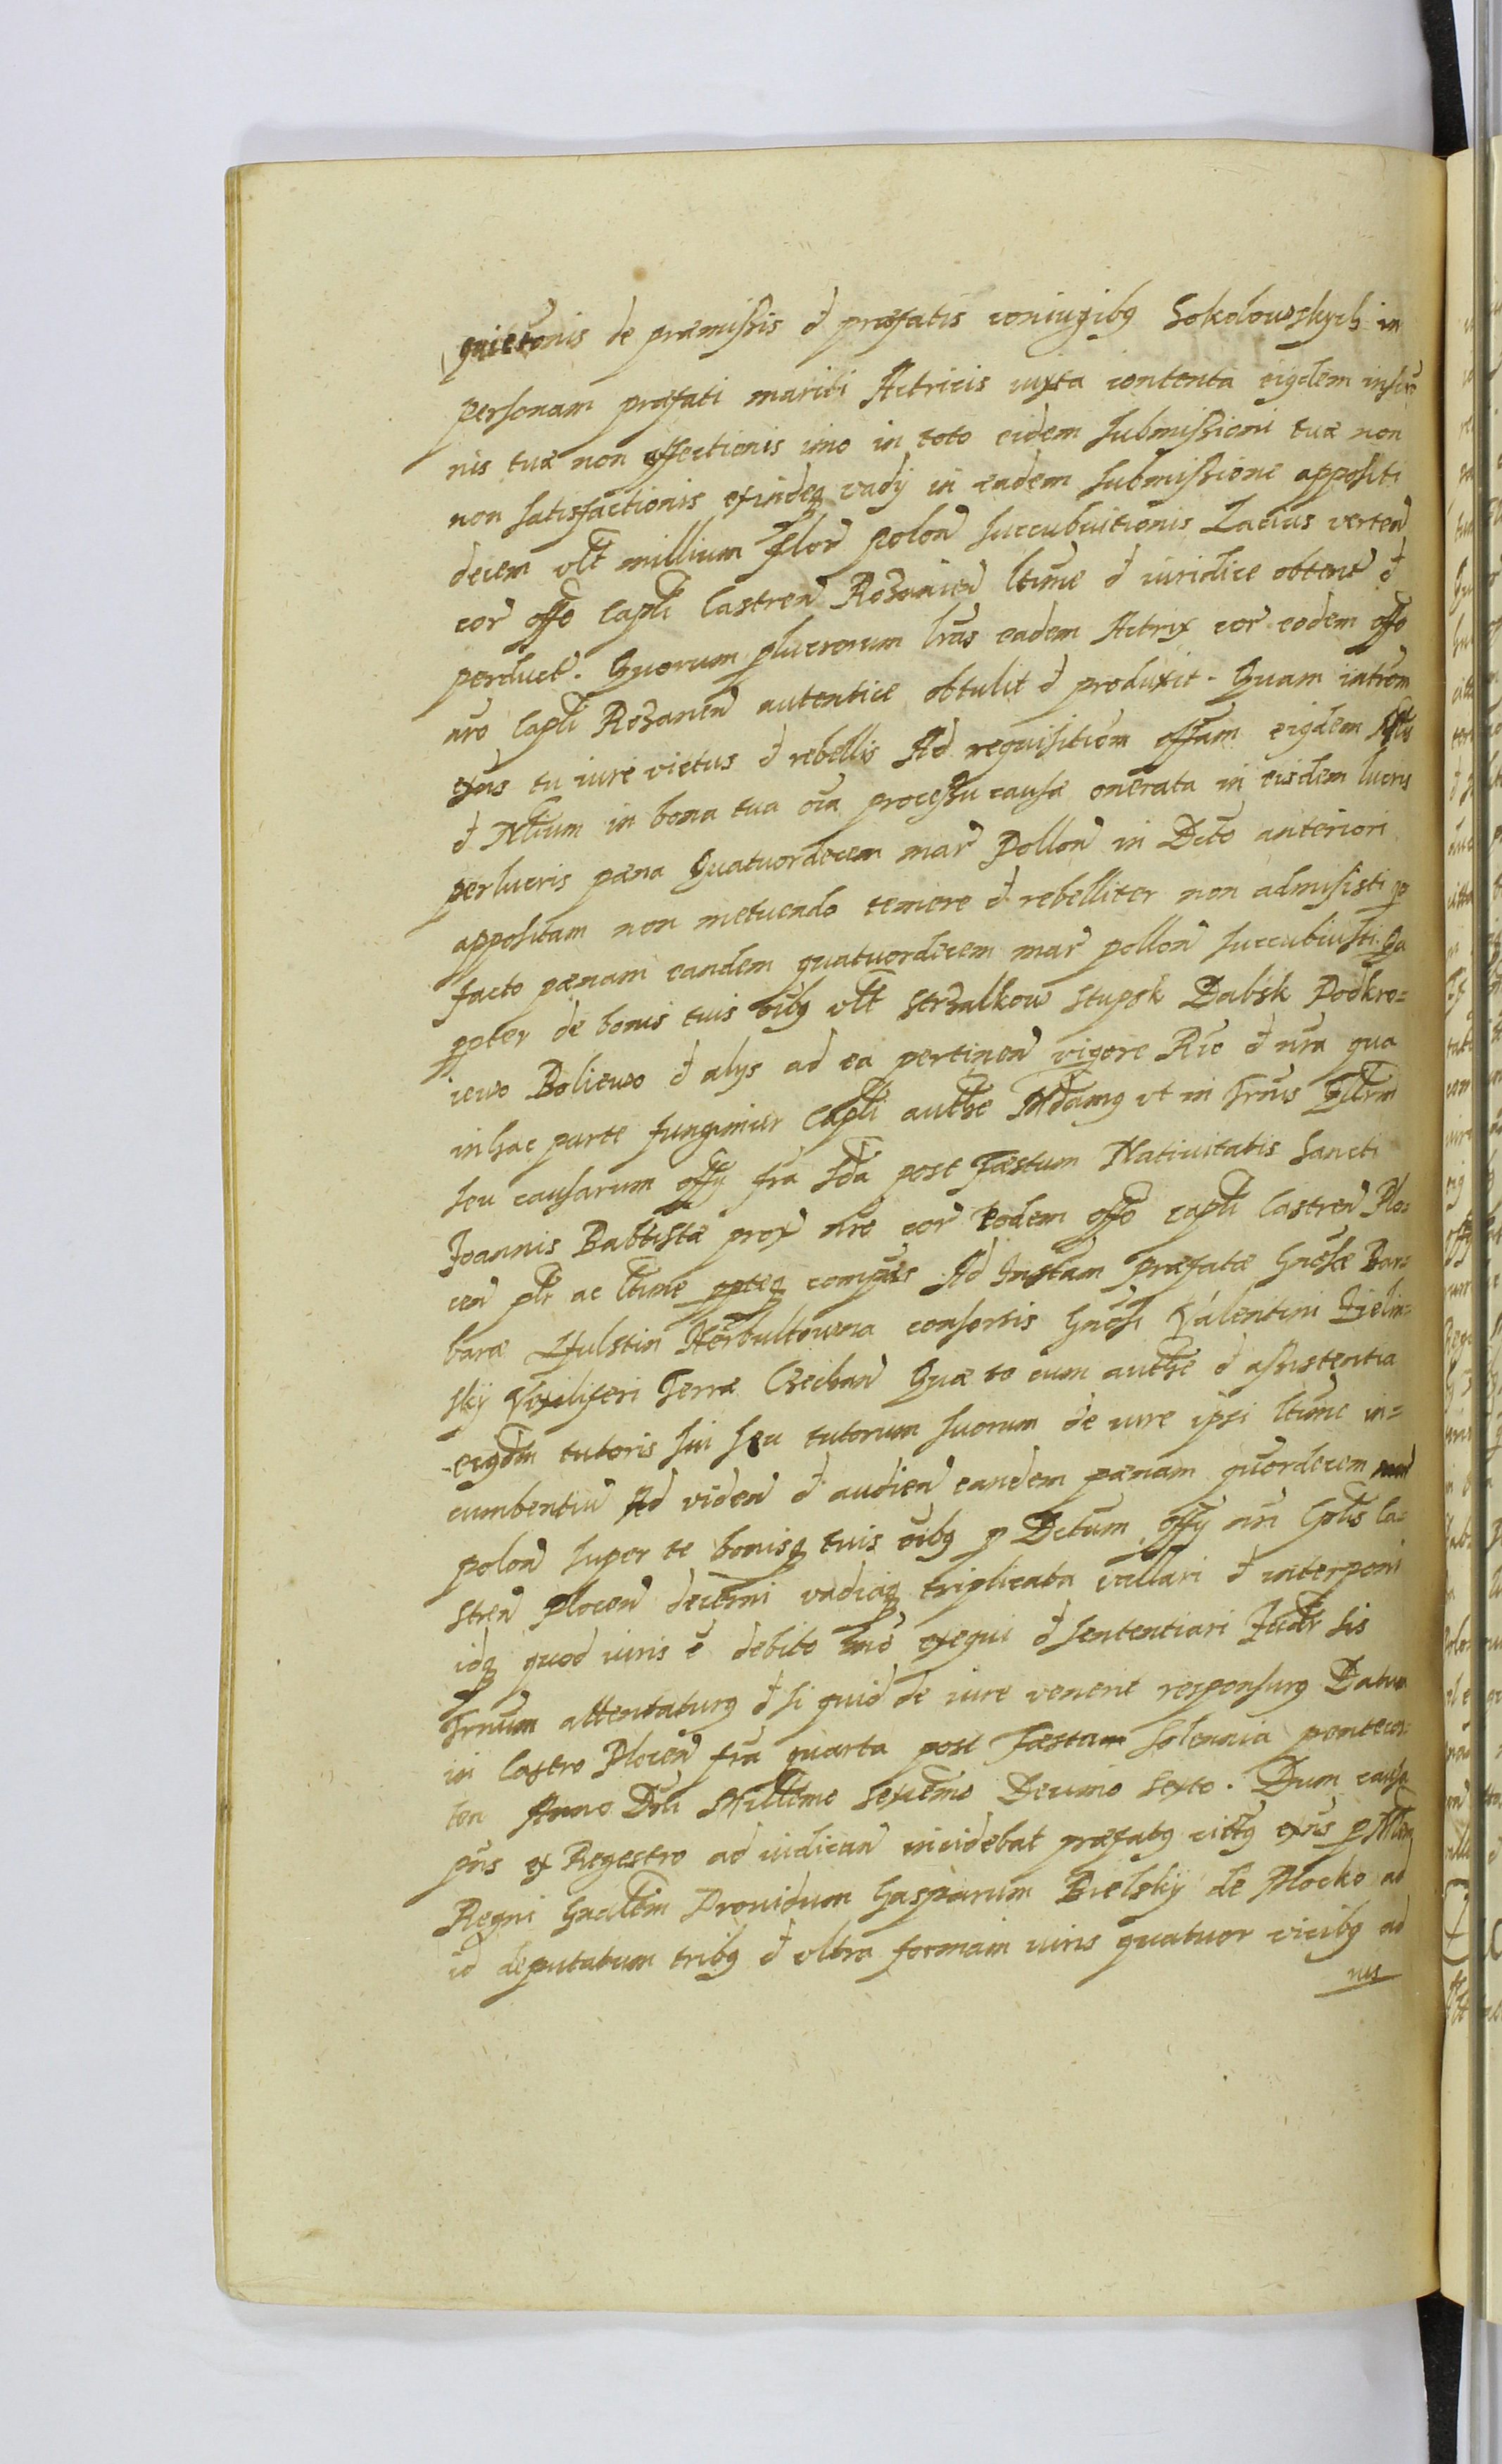 quietonis de præmissis et præfatis coniugibq Sokolowskych in
personam præfati mariti Actricis iuxta contenta eiqdem inscrip
nis tuæ non effectionis imo in toto eidem submissioni tuæ non
non satisfactionis exindeq vadÿ in eadem submissione appositi
decem vlt millium flor polon succubuitionis Latius verten
cor offo Capli Castren Rozanien ltime et iuridice obtent et
perduct. Quorum plucrorum lras eadem Actrix cor eodem offo
nro Capli Rozanen autentice obtulit et produxit. Quam introm
exns tu iure victus et rebellis Ad requisitiom offam eiqdem
et Nlium in bona tua oia processu causæ onerata in eisdem lucris
perlucris pæna Quatuordecem mar Pollon in Dcto anteriori
appositam non metuendo temere et rebelliter non admisisti p
facto pænam eandem quatuordecem mar pollon succubuisti. Qa
ppter de bonis tuis oibq vlt Strzalkow Stupsk Dabsk Podkro=
iewo Boliewo et alys ad ea pertinen vigore Rio et nra qua
in hac parte fungimur Capli authe Mdamq vt in Trnis
seu causarum offÿ fra 2da post Fæstum Natiuitatis Sancti
Joannis Babtistæ prox nre cor eodem offo capli Castren Plo=
cen plr ac ltime ppteq compas Ad Instam præfatæ Gnosæ Bar=
baræ Fulstin Herbultowna consortis Gnosi Valentini Zielin=
skÿ Vexiliferi Terræ Ciechan Quæ te cum authe et assistentia
eiqdm tutoris sui seu tutorum suorum de iure ipsi ltime in=
cumbentiu Ad viden et audien eandem pænam quordecem mar
polon super te bonisq tuis oibq p Dctum offÿ nri Capli Ca=
stren Plocen decerni vadiaq triplicata vallari et interponi
idq quod iuris e debito mo exequi et sententiari Judr sis
Trnum attentaturq et si quid de iure venerit responsurq Datum
in Castro Plocen fra quarta post Fæstam solennia pentecos=
ten Anno Dni Millemo sexcemo Decimo sexto. Dum causa
pns ex Regestro ad iudican incidebat præfatq cittq exns p Mlem
Regni Gnalem Prouidum Gasparum Bielsky de Plocko ad
id deputatum tribq et vltra formam iuris quatuor vicibq ad
ius